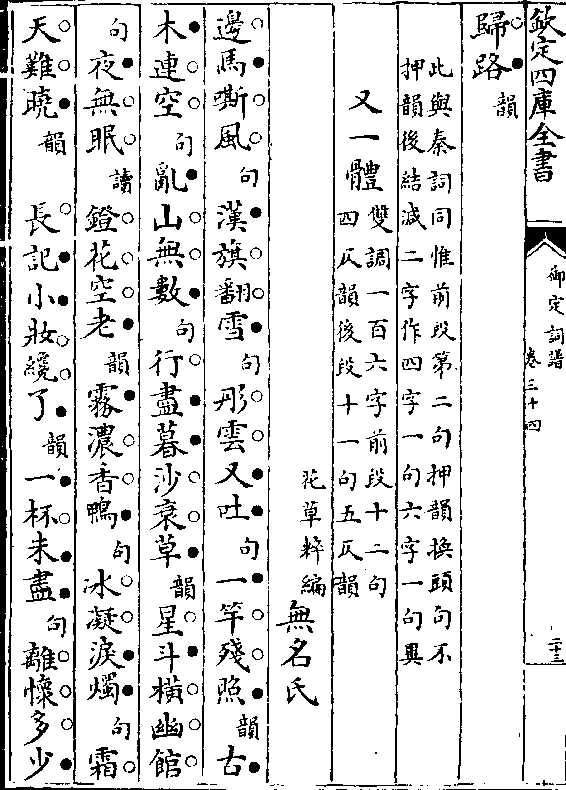 欽定四庫全書
御定詞譜
卷三十四
二十三
歸路韻
此與秦詞同惟前段第二句押韻換頭句不
押韻後結減二字作四字一句六字一句異
又一體
雙調一百六字前段十二句
四仄韻後段十一句五仄韻
花草粹編無名氏
邊馬嘶風句漢旗翻雪句彤雲又吐句一竿殘照韻古
木連空句亂山無數句行盡暮沙衰草韻星斗橫幽館
句夜無眠讀鐙花空老韻霧濃香鴨句冰凝淚燭句霜
天難曉韻長記小妝纔了韻一杯未盡句離懷多少